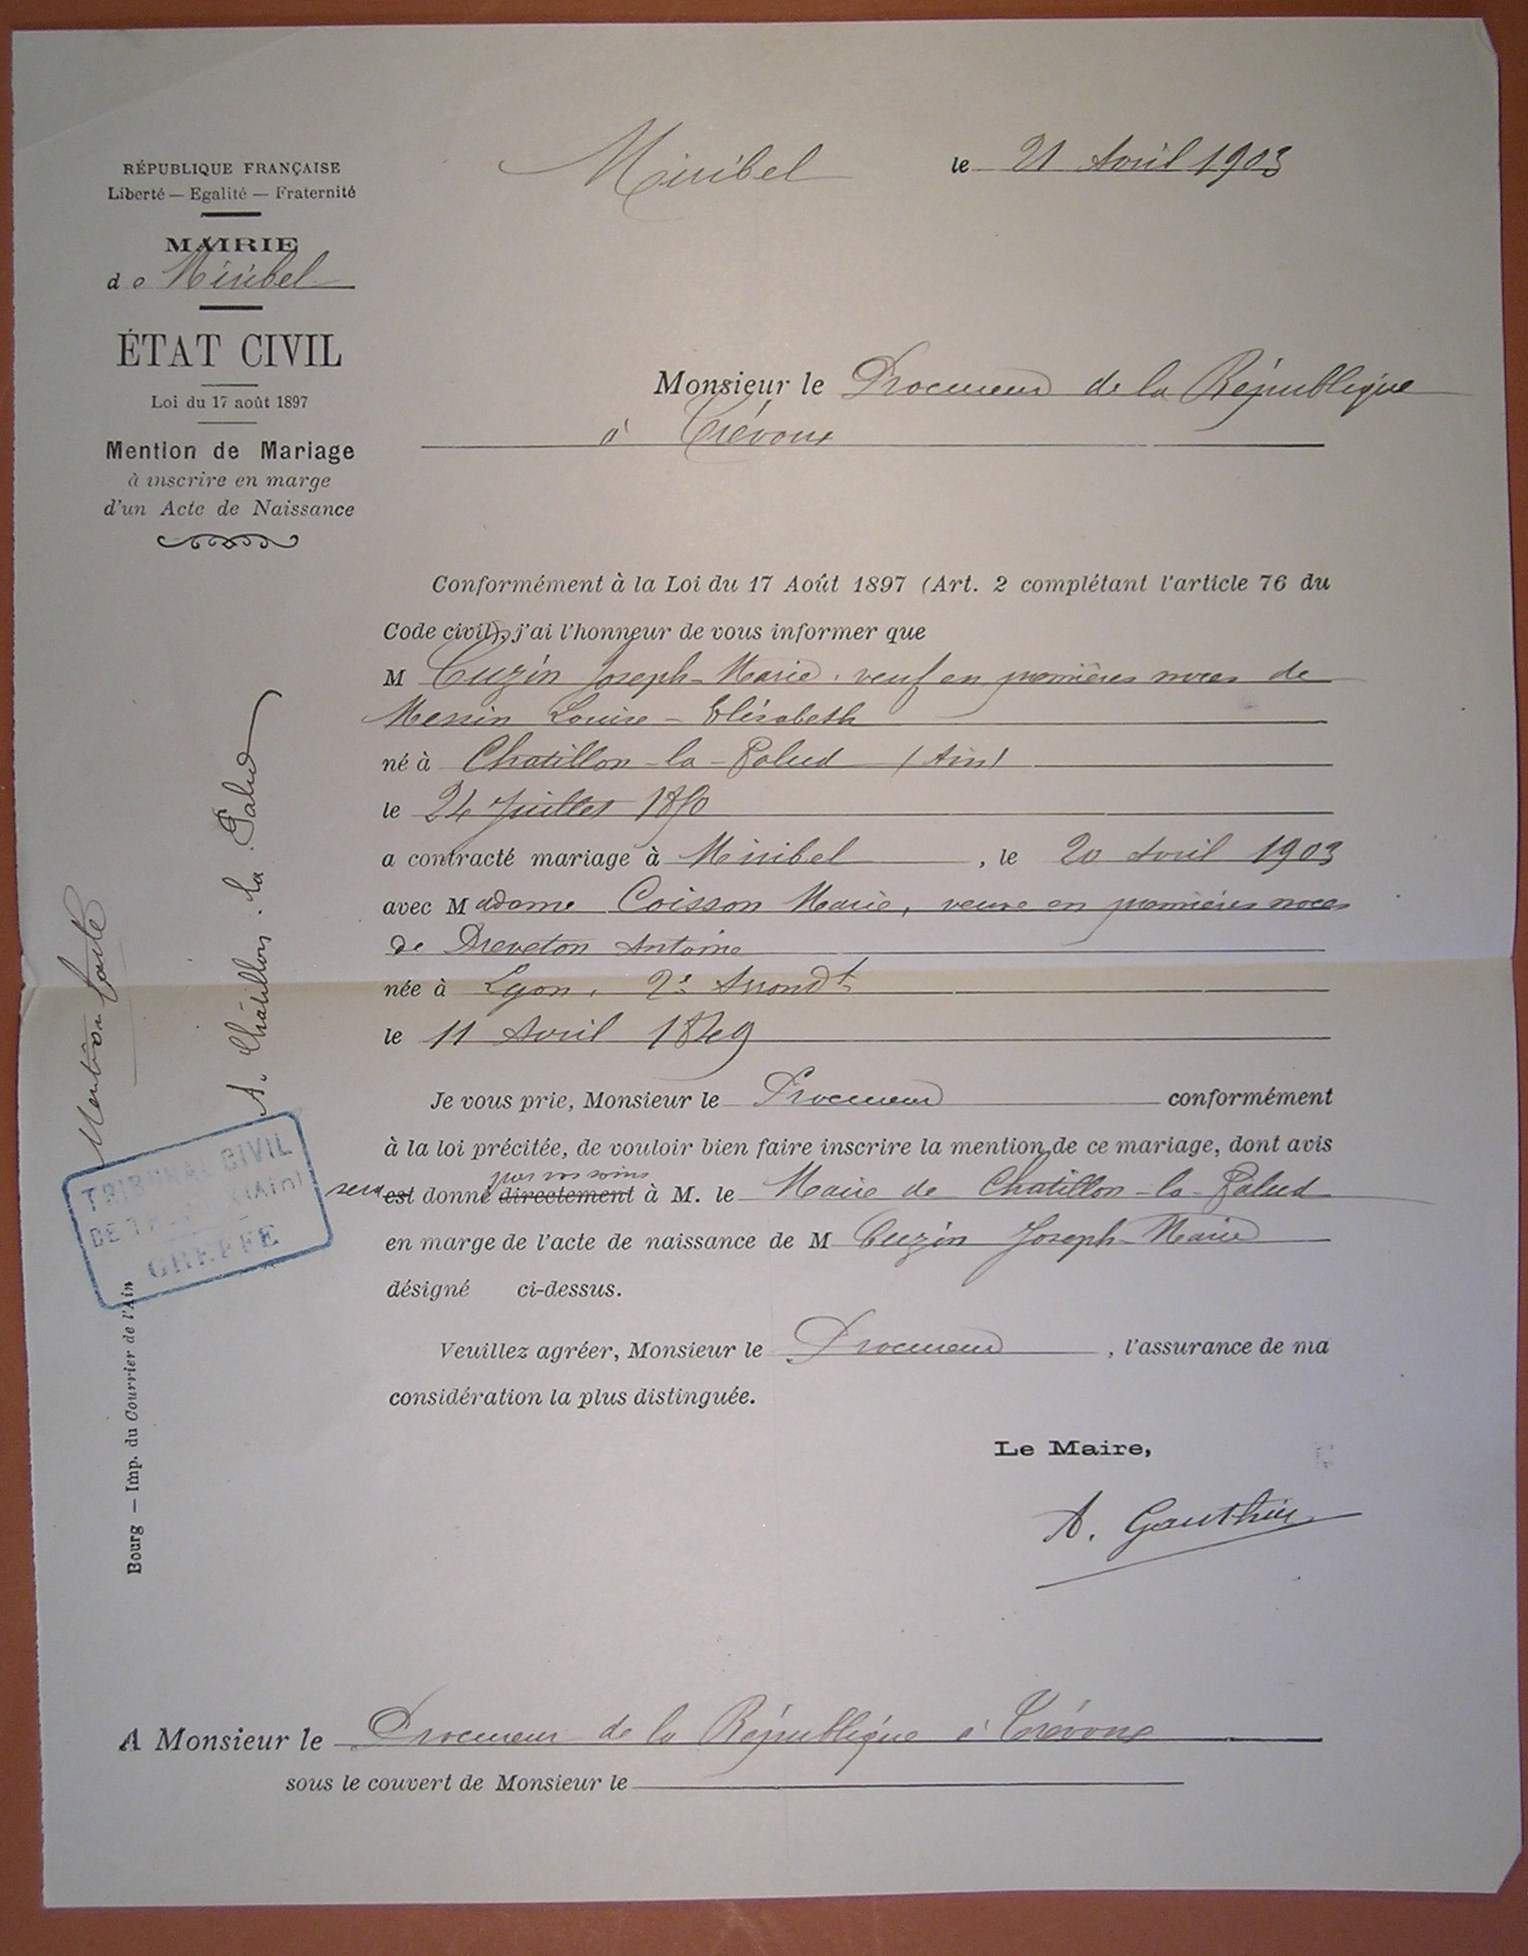 RÉPUBLIQUE FRANÇAISE
Liberté — Egalité — Fraternité
MAIRIE
de Miribel
ÉTAT CIVIL
Loi du 17 août 1897
Mention de Mariage
à inscrire en marge
d'un Acte de Naissance
Miribel le 21 Avril 1903
Monsieur le Procureur de la République
à Trévoux
Conformément à la Loi du 17 Août 1897 (Art. 2 complétant l'article 76 du
Code civil), j'ai l'honneur de vous informer que
M Cuzin Joseph-Marie, veuf en premières noces de
Louise-Elisabeth
né à Chatillon-la-Palud (Ain)
le 24 Juillet
a contracté mariage à Miribel, le 20 Avril 1903
avec Madame Coisson Marie, veuve en premières noces
de Dreveton Antoine
née à Lyon, 2e Arrondt
le 11 Avril 1849
Je vous prie, Monsieur le Procureur conformément
à la loi précitée, de vouloir bien faire inscrire la mention de ce mariage, dont avis
par vos soins
sera est donné directement à M. le Maire de Chatillon-la-Palud
en marge de l'acte de naissance de M Cuzin Joseph-Marie
désigné ci-dessus.
Veuillez agréer, Monsieur le Procureur, l'assurance de ma
considération la plus distinguée.
Le Maire,
A. Gauthier
A Monsieur le Procureur de la République à Trévoux
sous le couvert de Monsieur le
Mention faite
A. Châtillon-la-Palud
TRIBUNAL CIVIL
DE (Ain)
GREFFE
Bourg — Imp. du Courrier de l'Ain